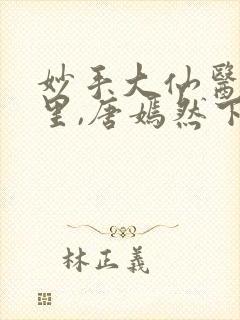 妙手大仙醫
里,唐嫣然下
林正義